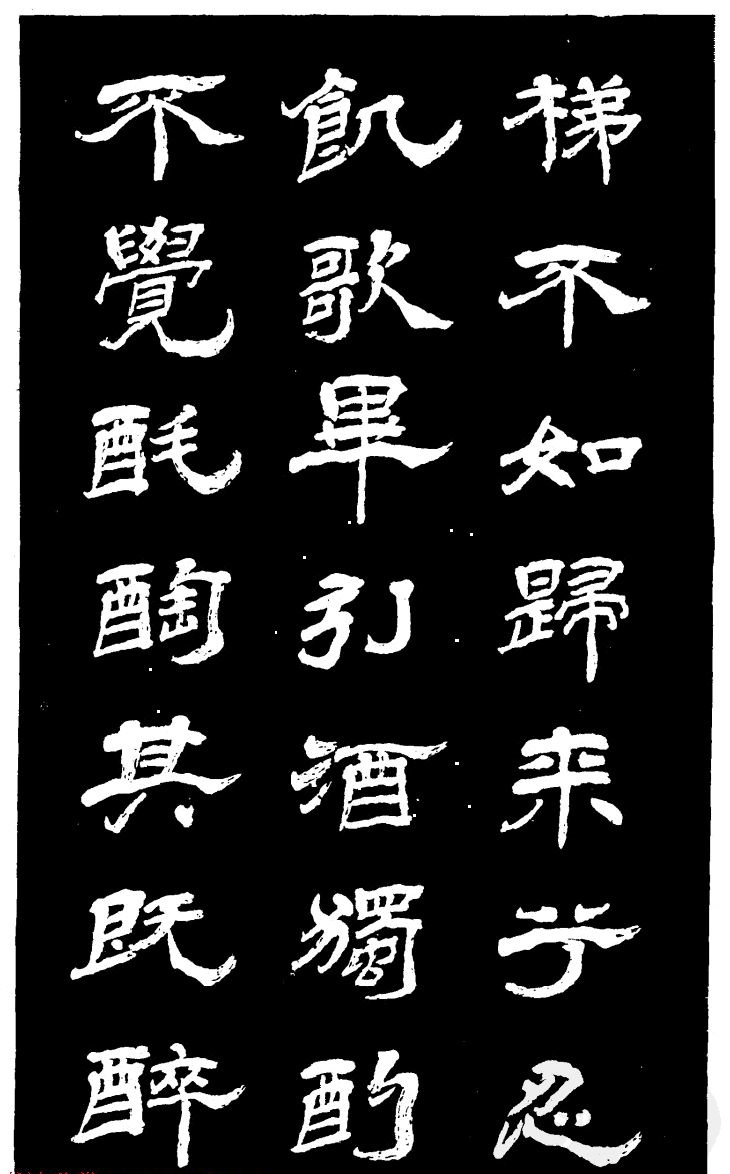 梯不如歸来乎忍
飢歌畢引酒獨酌
不覺酕醄其既醉